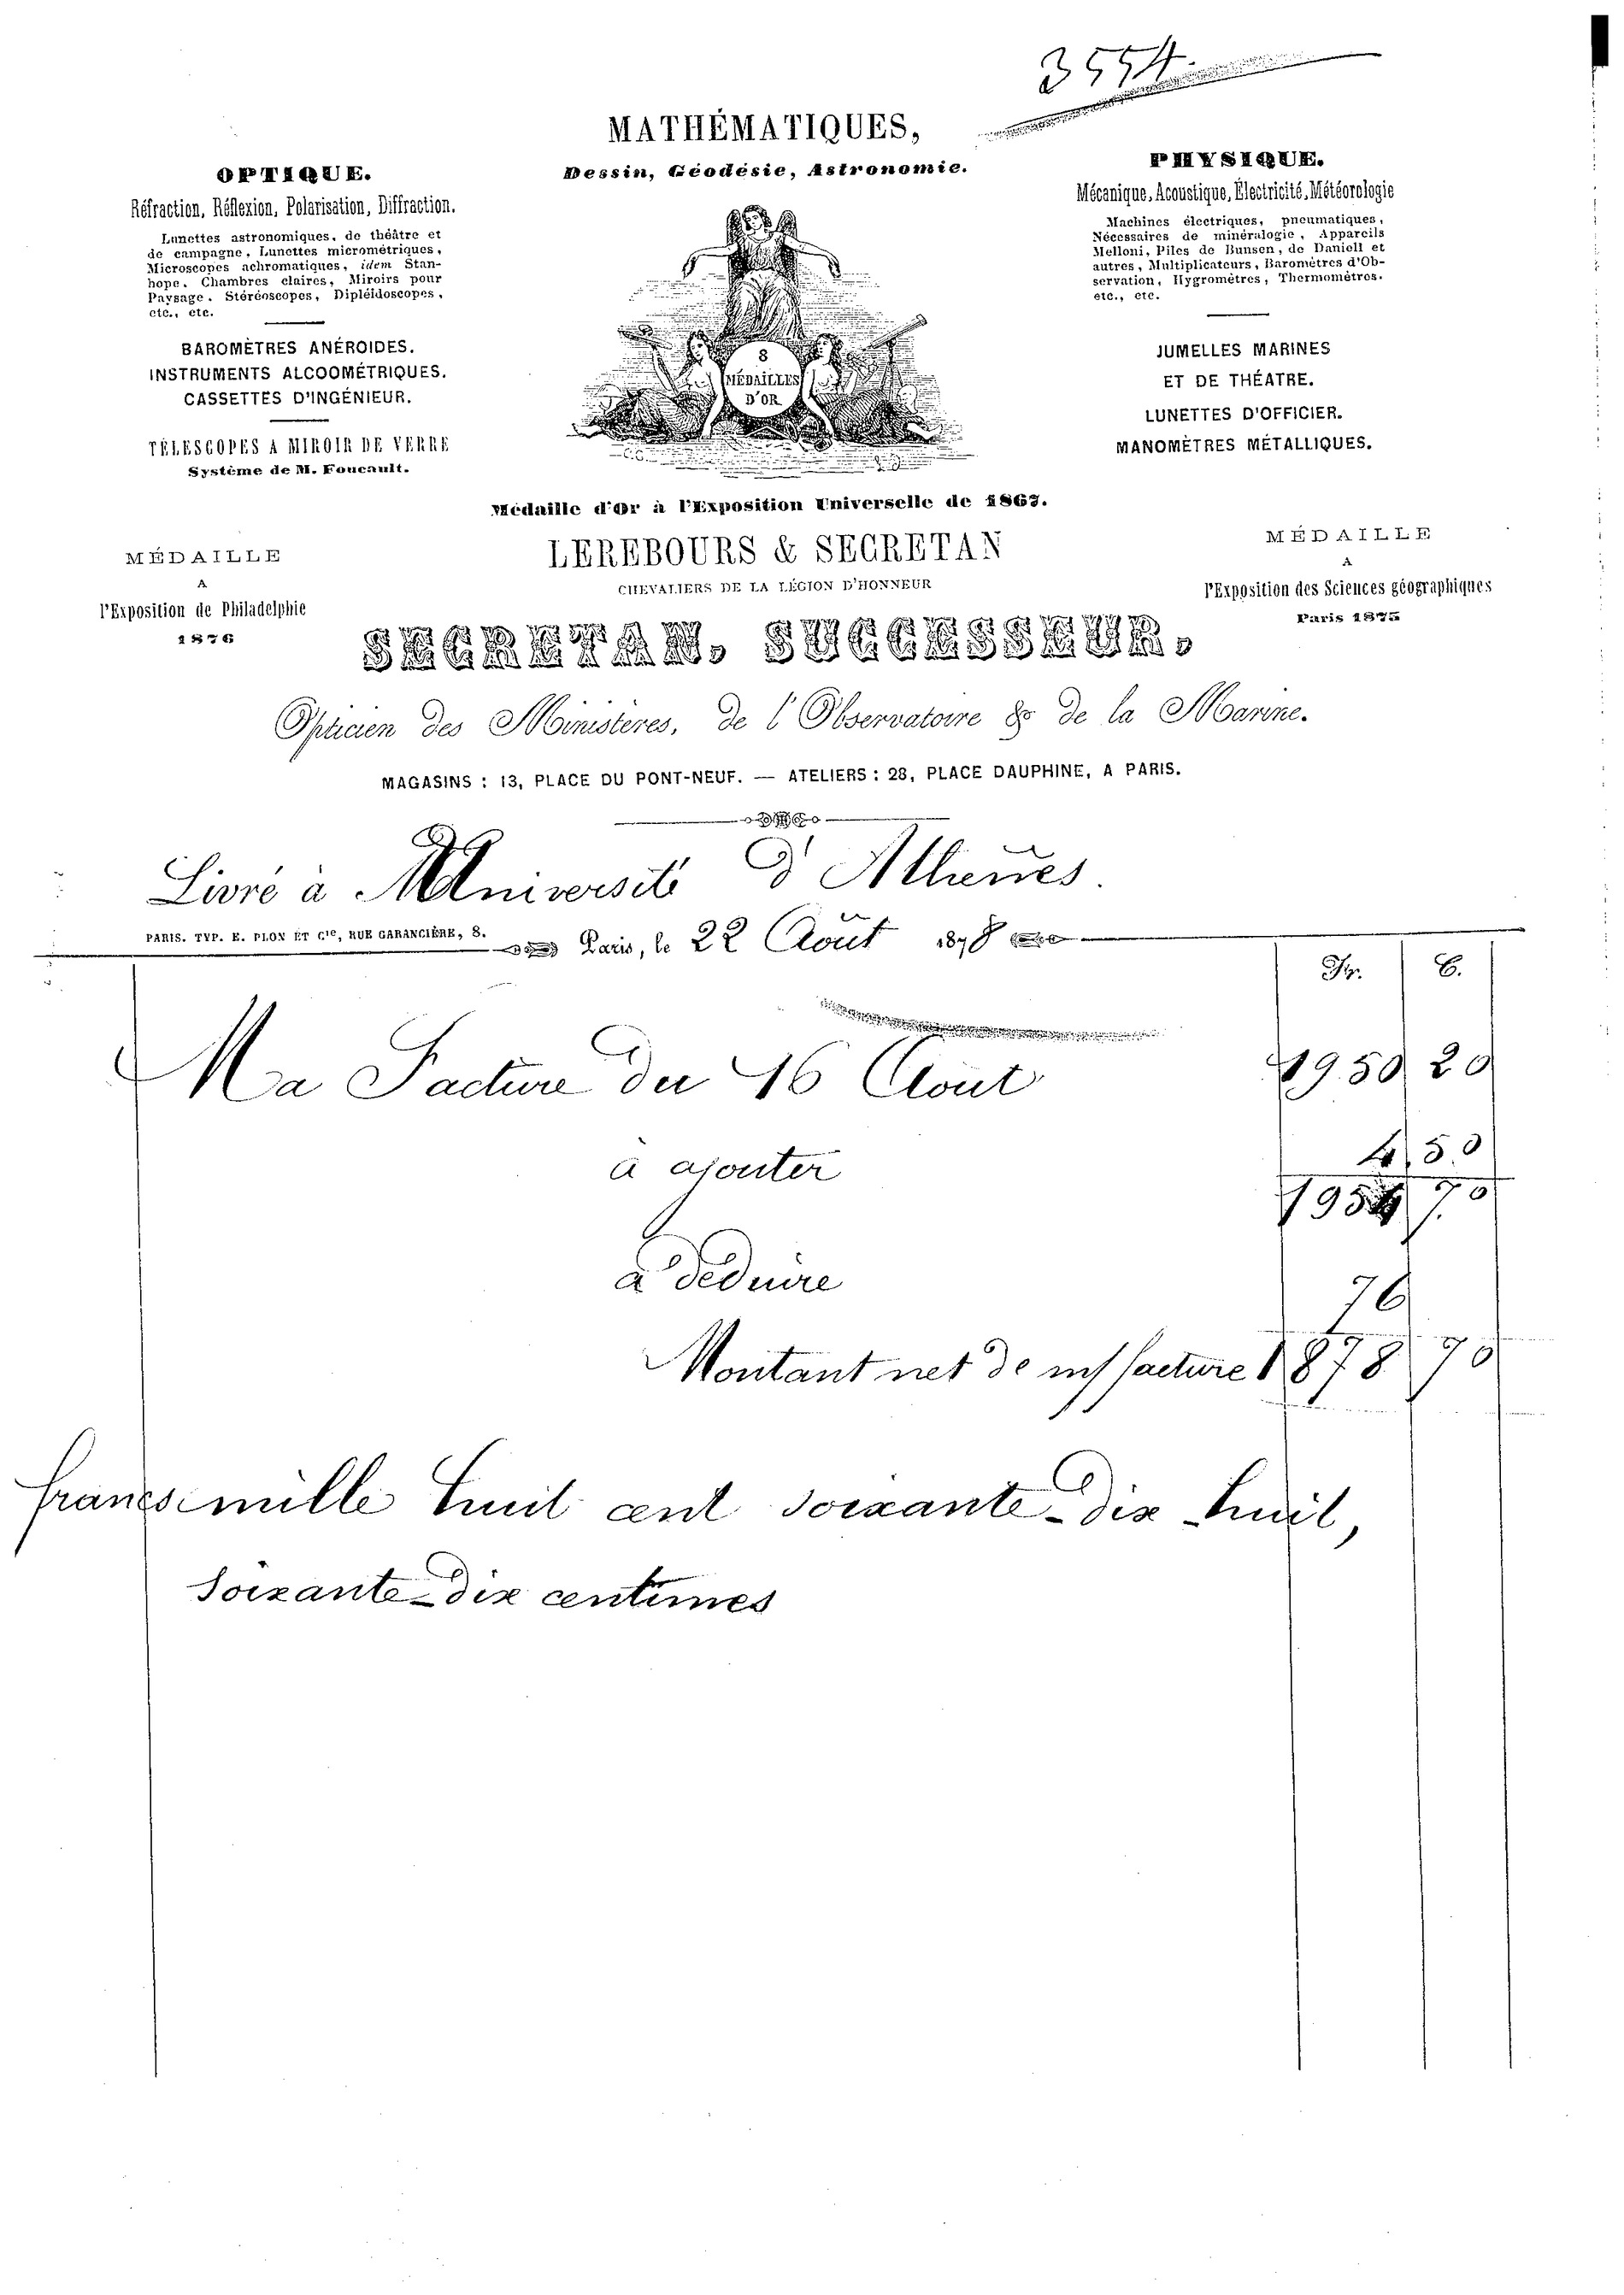 3554
MATHÉMATIQUES,
Dessin, Géodésie, Astronomie.
OPTIQUE.
Réfraction, Réflexion, Polarisation, Diffraction.
Lunettes astronomiques, de théâtre et
de campagne, Lunettes micrométriques,
Microscopes achromatiques, idem Stan-
hope. Chambres claires, Miroirs pour
Paysage. Stéréoscopes, Dipléidoscopes,
etc., etc.
BAROMÈTRES ANÉROIDES.
INSTRUMENTS ALCOOMÉTRIQUES.
CASSETTES D'INGÉNIEUR.
TÉLESCOPES A MIROIR DE VERRE
Système de M. Foucault.
PHYSIQUE.
Mécanique, Acoustique, Électricité, Météorologie
Machines électriques, pneumatiques,
Nécessaires de minéralogie, Appareils
Melloni, Piles de Bunsen, de Daniell et
autres, Multiplicateurs, Baromètres d'Ob-
servation, Hygromètres, Thermomètres.
etc., etc.
JUMELLES MARINES
ET DE THÉATRE.
LUNETTES D'OFFICIER.
MANOMÈTRES MÉTALLIQUES.
8
MÉDAILLES
D'OR
Médaille d'Or à l'Exposition Universelle de 1867.
LEREBOURS & SECRETAN
CHEVALIERS DE LA LÉGION D'HONNEUR
MÉDAILLE
A
l'Exposition de Philadelphie
1876
MÉDAILLE
A
l'Exposition des Sciences géographiques
Paris 1875
SECRETAN, SUCCESSEUR,
Opticien des Ministères, de l'Observatoire & de la Marine.
MAGASINS : 13, PLACE DU PONT-NEUF. — ATELIERS : 28, PLACE DAUPHINE, A PARIS.
Livré à Université d'Athènes.
PARIS. TYP. E. PLON ET Cie, RUE GARANCIÈRE, 8.
Paris, le 22 Août 1878
Fr. C.
Ma Facture du 16 Août 1950 20
à ajouter 4.50
1954 70
à déduire 76
Montant net de m/ facture 1878 70
francs mille huit cent soixante-dix-huit,
soixante-dix centimes